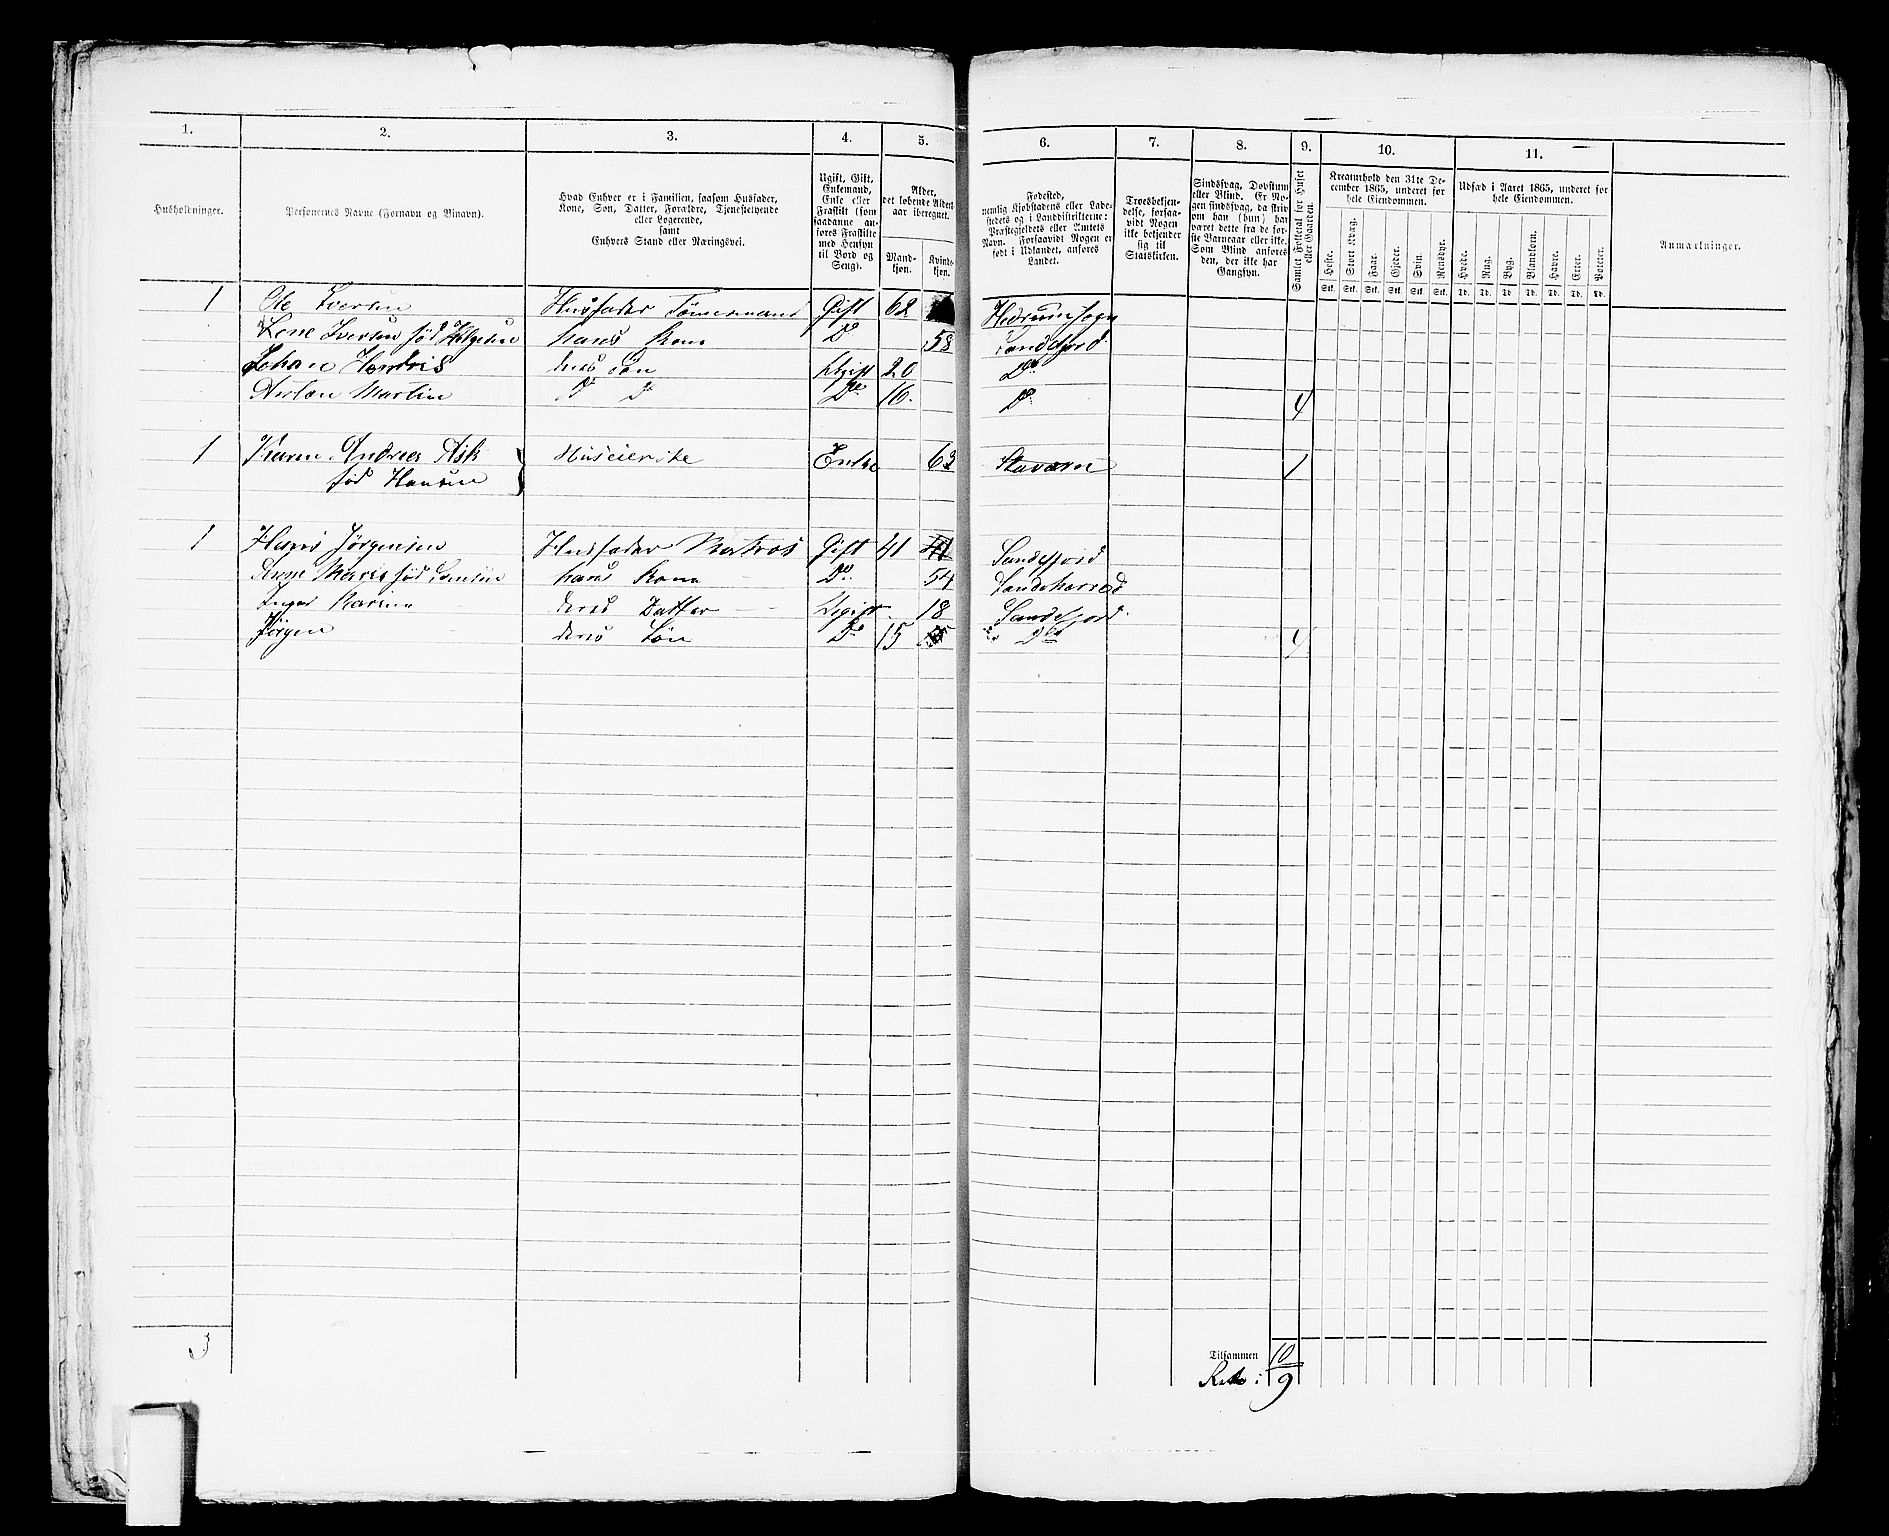 1. 2. 3. 4. 5. 6. 7. 8. 9. 10. 11.
Husholdninger.
Personernes Navne (Fornavn og Binavn).
Hvad Enhver er i Familien, saasom Husfader,
Kone, Søn, Datter, Forældre, Tjenestetyende
eller Logerende,
samt
Enhvers Stand eller Næringsvei.
Ugift, Gift,
Enkemand,
Enke eller
Fraskilt (som
saadanne an-
føres Fraskilte
med Hensyn
til Bord og
Seng).
Alder,
det løbende Alders-
aar iberegnet.
Mand-
kjøn.
Kvinde-
kjøn.
Fødested,
nemlig Kjøbstadens eller Lade-
stedets og i Landdistrikterne:
Præstegjeldets eller Amtets
Navn. Forsaavidt Nogen er
født i Udlandet, anføres
Landet.
Troesbekjen-
delse, forsaa-
vidt Nogen
ikke bekjender
sig til
Statskirken.
Sindssvag, Døvstum
eller Blind. Er No-
gen sindssvag, da skriv
om han (hun) har
været dette fra de før-
ste Barneaar eller ikke.
Som Blind anføres
den, der ikke har
Gangsyn.
Samlet Folketal for Huset
eller Gaarden.
Kreaturhold den 31te De-
cember 1865, underet for
hele Eiendommen.
Heste. Stort Kvæg. Faar. Gjeder. Svin. Rensdyr.
Stk. Stk. Stk. Stk. Stk. Stk.
Udsæd i Aaret 1865, underet for
hele Eiendommen.
Hvede. Rug. Byg. Blandkorn. Havre. Erter. Poteter.
Td. Td. Td. Td. Td. Td. Td.
Anmærkninger.
1 Ole Iversen Husfader Tømermand Gift 62 Hedrum sogn
Lene Iversen fød Helgesen hans Kone Do 58 Sandefjord
Johan Hendris hans Søn Ugift 20 Do
Martin Do Do Do 16. Do 4
1 Karen Andrea Ask Huseierske Enke 63 Staværn 1
fød Hansen
1 Hans Jørgensen Husfader Matros Gift 41 41 Sandefjord
Anne Marie fød hans Kone Do. 54 Sandeherred
Inger Karine deres Datter Ugift 18 Sandefjord.
Jørgen deres Søn Do 15 15 Do 4
3
Tilsammen 10
9